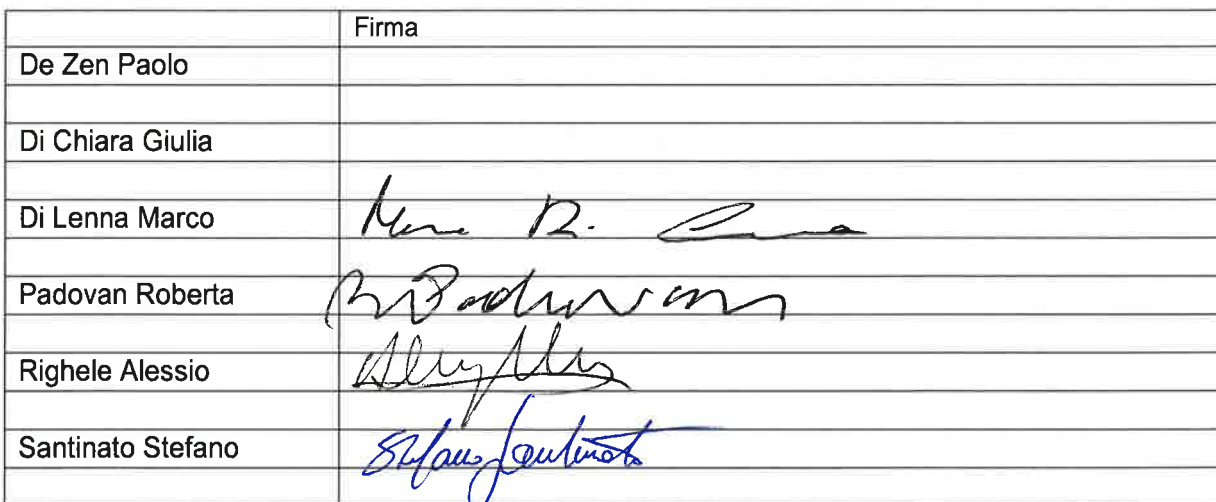 Firma
De Zen Paolo
Di Chiara Giulia
Di Lenna Marco
Padovan Roberta
Righele Alessio
Santinato Stefano Stefano Santinato